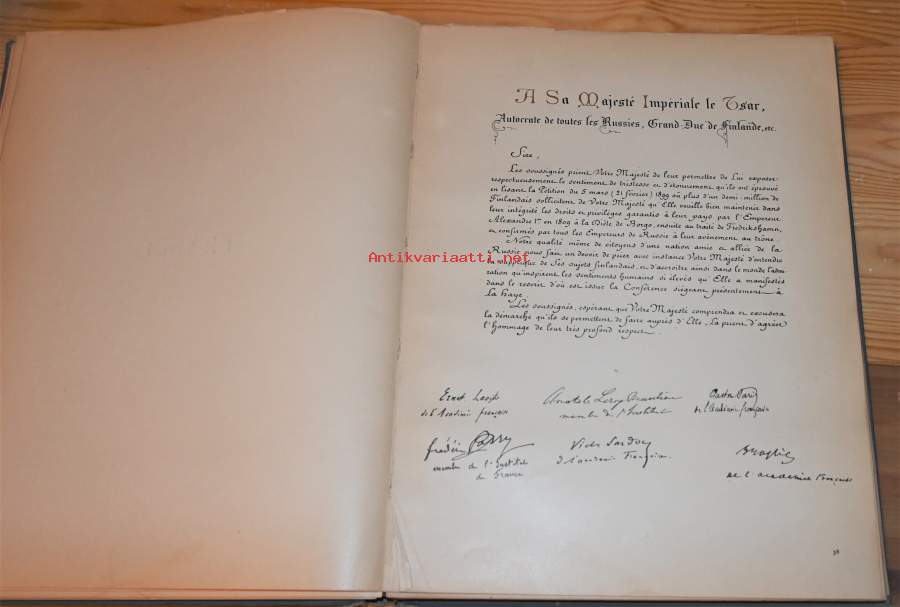 A Sa Majesté Impériale le Tsar,
Autocrate de toutes les Russies, Grand-Duc de Finlande, etc.
Sire,
Les soussignés prient Votre Majesté de leur permettre de Lui exposer
respectueusement le sentiment de tristesse et d'étonnement qu'ils ont éprouvé
en lisant la Pétition du 5 mars (21 février) 1899 où plus d'un demi-million de
Finlandais sollicitent de Votre Majesté qu'Elle veuille bien maintenir dans
leur intégrité les droits et privilèges garantis à leur pays, par l'Empereur
Alexandre 1er en 1809 à la Diète de Borgo, ensuite au traité de Fredrikshamn,
et confirmés par tous les Empereurs de Russie à leur avènement au trône.
Notre qualité même de citoyens d'une nation amie et alliée de la
Russie nous fait un devoir de prier avec instance Votre Majesté d'entendre
la supplique de Ses sujets finlandais, et d'accroître ainsi dans le monde l'admi-
Antikvariaatti.net
ration qu'inspirent les sentiments humains si élevés qu'Elle a manifestés
dans le rescrit d'où est issue la Conférence siégeant présentement à
La Haye.
Les soussignés, espérant que Votre Majesté comprendra et excusera
la démarche qu'ils se permettent de faire auprès d'Elle, La prient d'agréer
l'hommage de leur très profond respect.
Ernest Lavisse Anatole Leroy-Beaulieu Gaston Paris
de l'Académie française membre de l'Institut de l'Académie française
Frédéric Passy Victor Sardou Broglie
membre de l'Institut de l'académie Française
de France
de l'académie Française